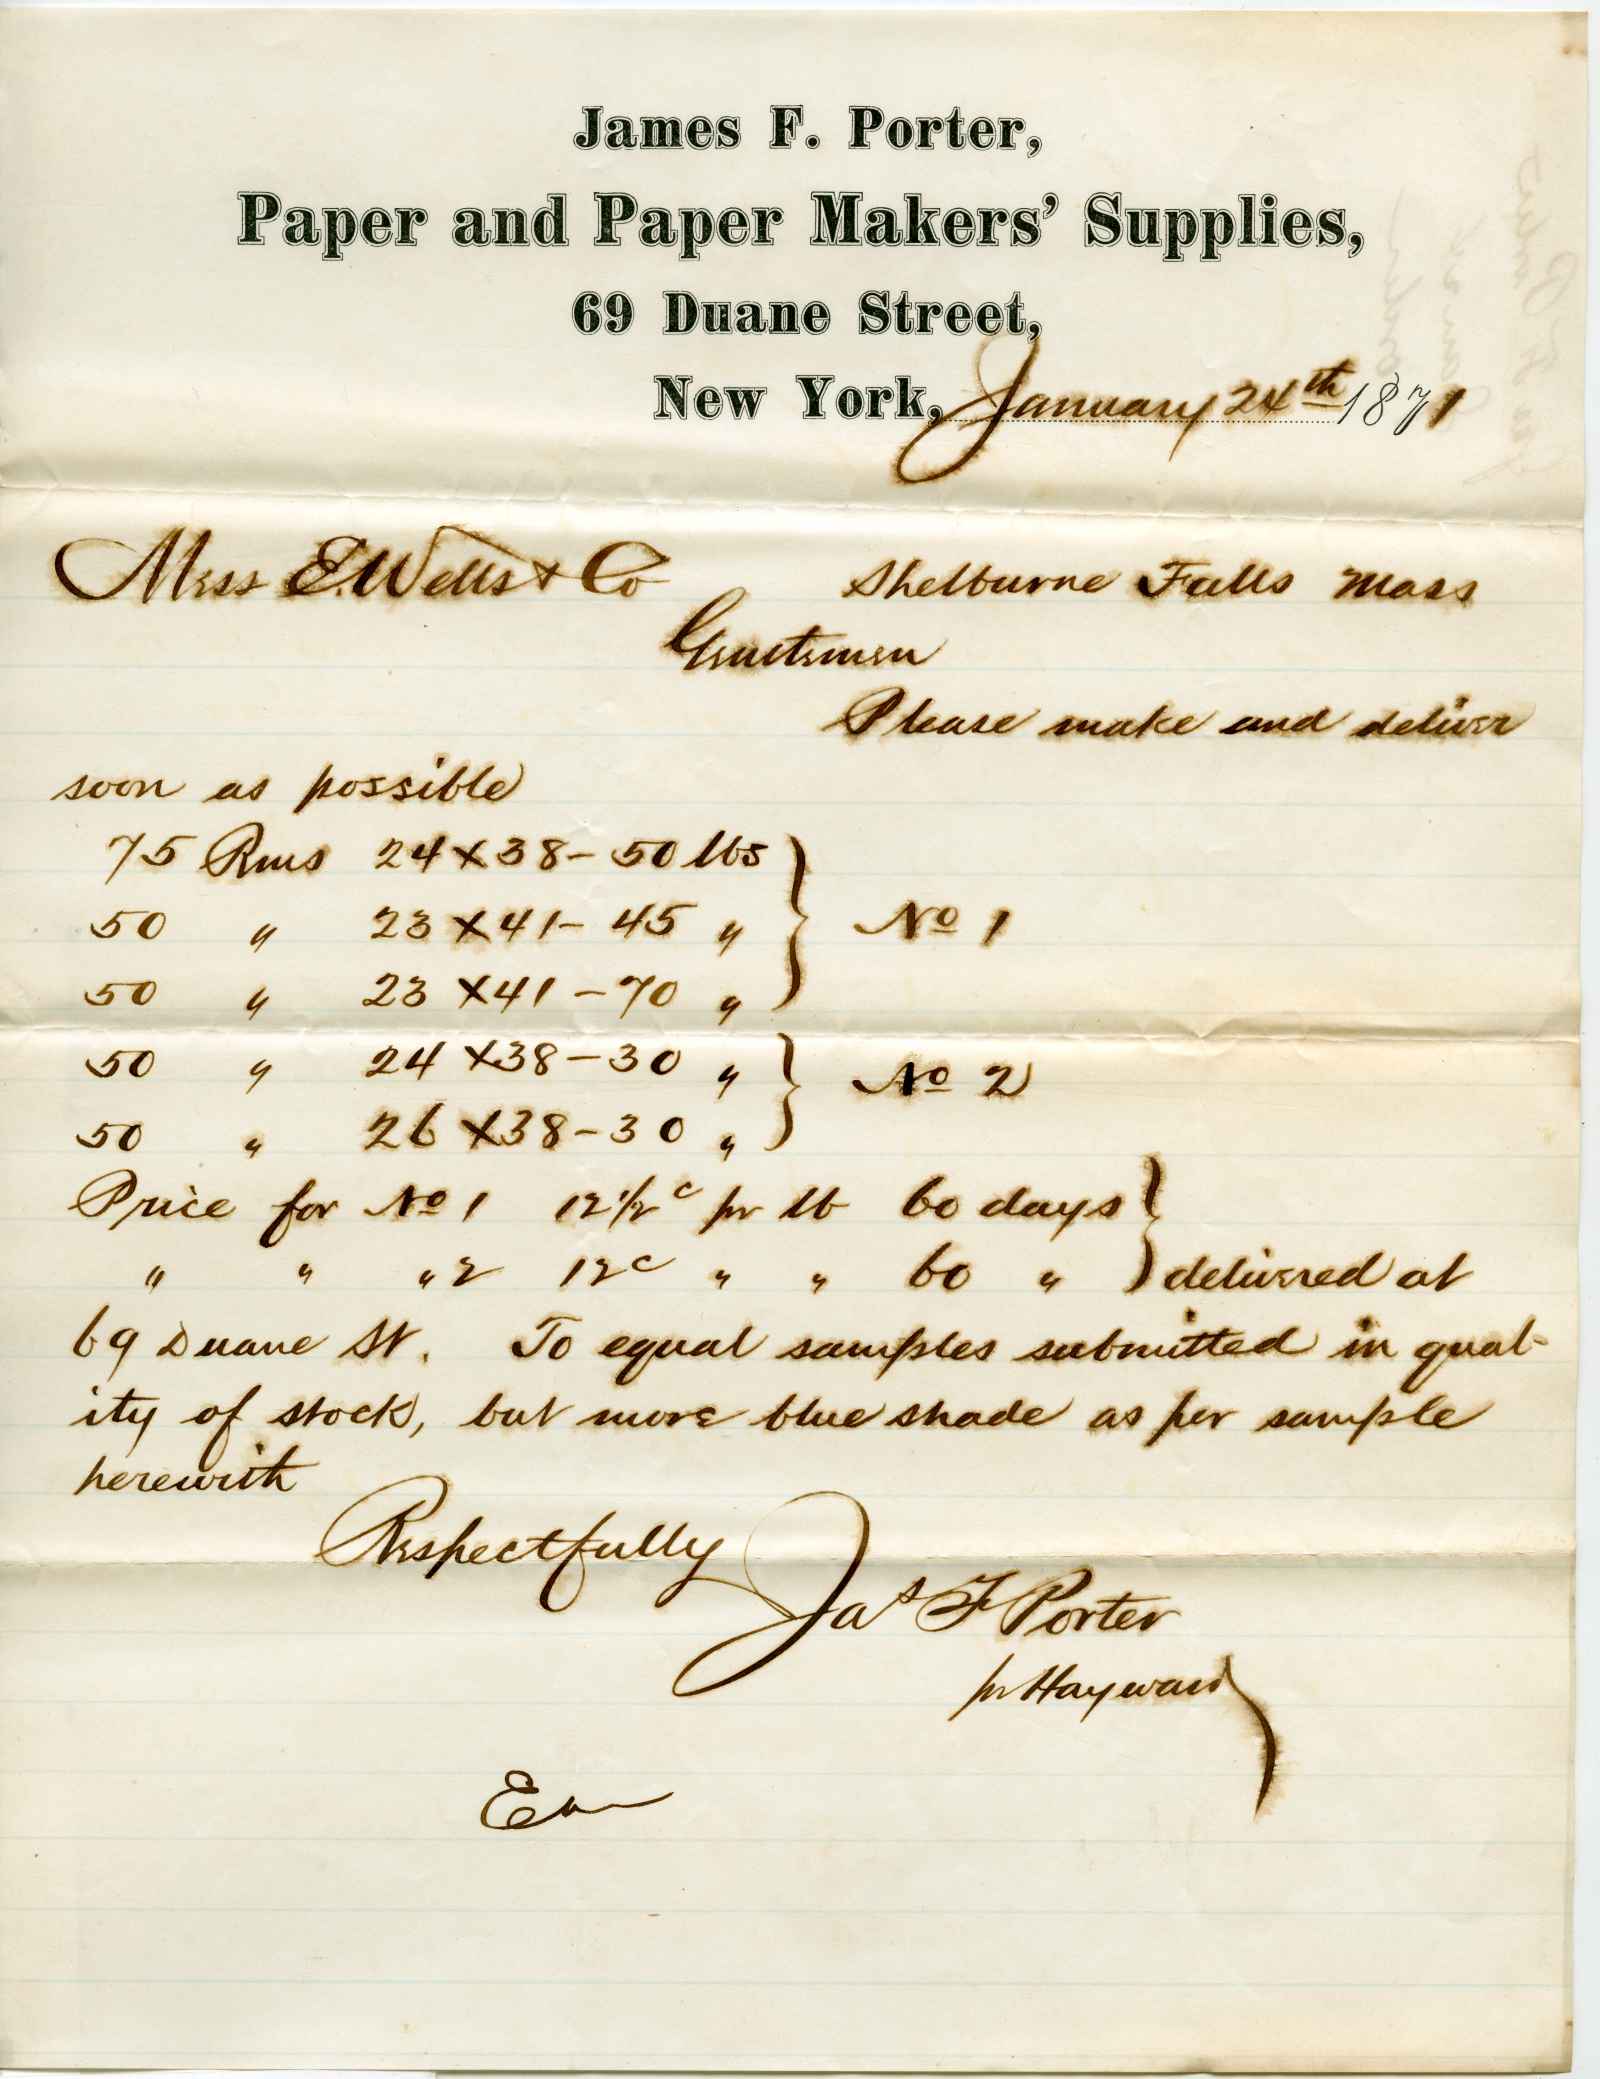 James F. Porter,
Paper and Paper Makers' Supplies,
69 Duane Street,
New York, January 24th 1871
Mess E. Wells & Co Shelburne Falls Mass
Gentlemen
Please make and deliver
soon as possible
75 Rms 24 X 38 - 50 lbs
50 " 23 X 41 - 45 " } No 1
50 " 23 X 41 - 70 "
50 " 24 X 38 - 30 " } No 2
50 " 26 X 38 - 30 "
Price for No 1 12 1/2 c pr lb 60 days }
" " " 2 12 c " " 60 " } delivered at
69 Duane St. To equal samples submitted in qual-
ity of stock, but more blue shade as per sample
herewith
Respectfully Jas F Porter
pr Hayward